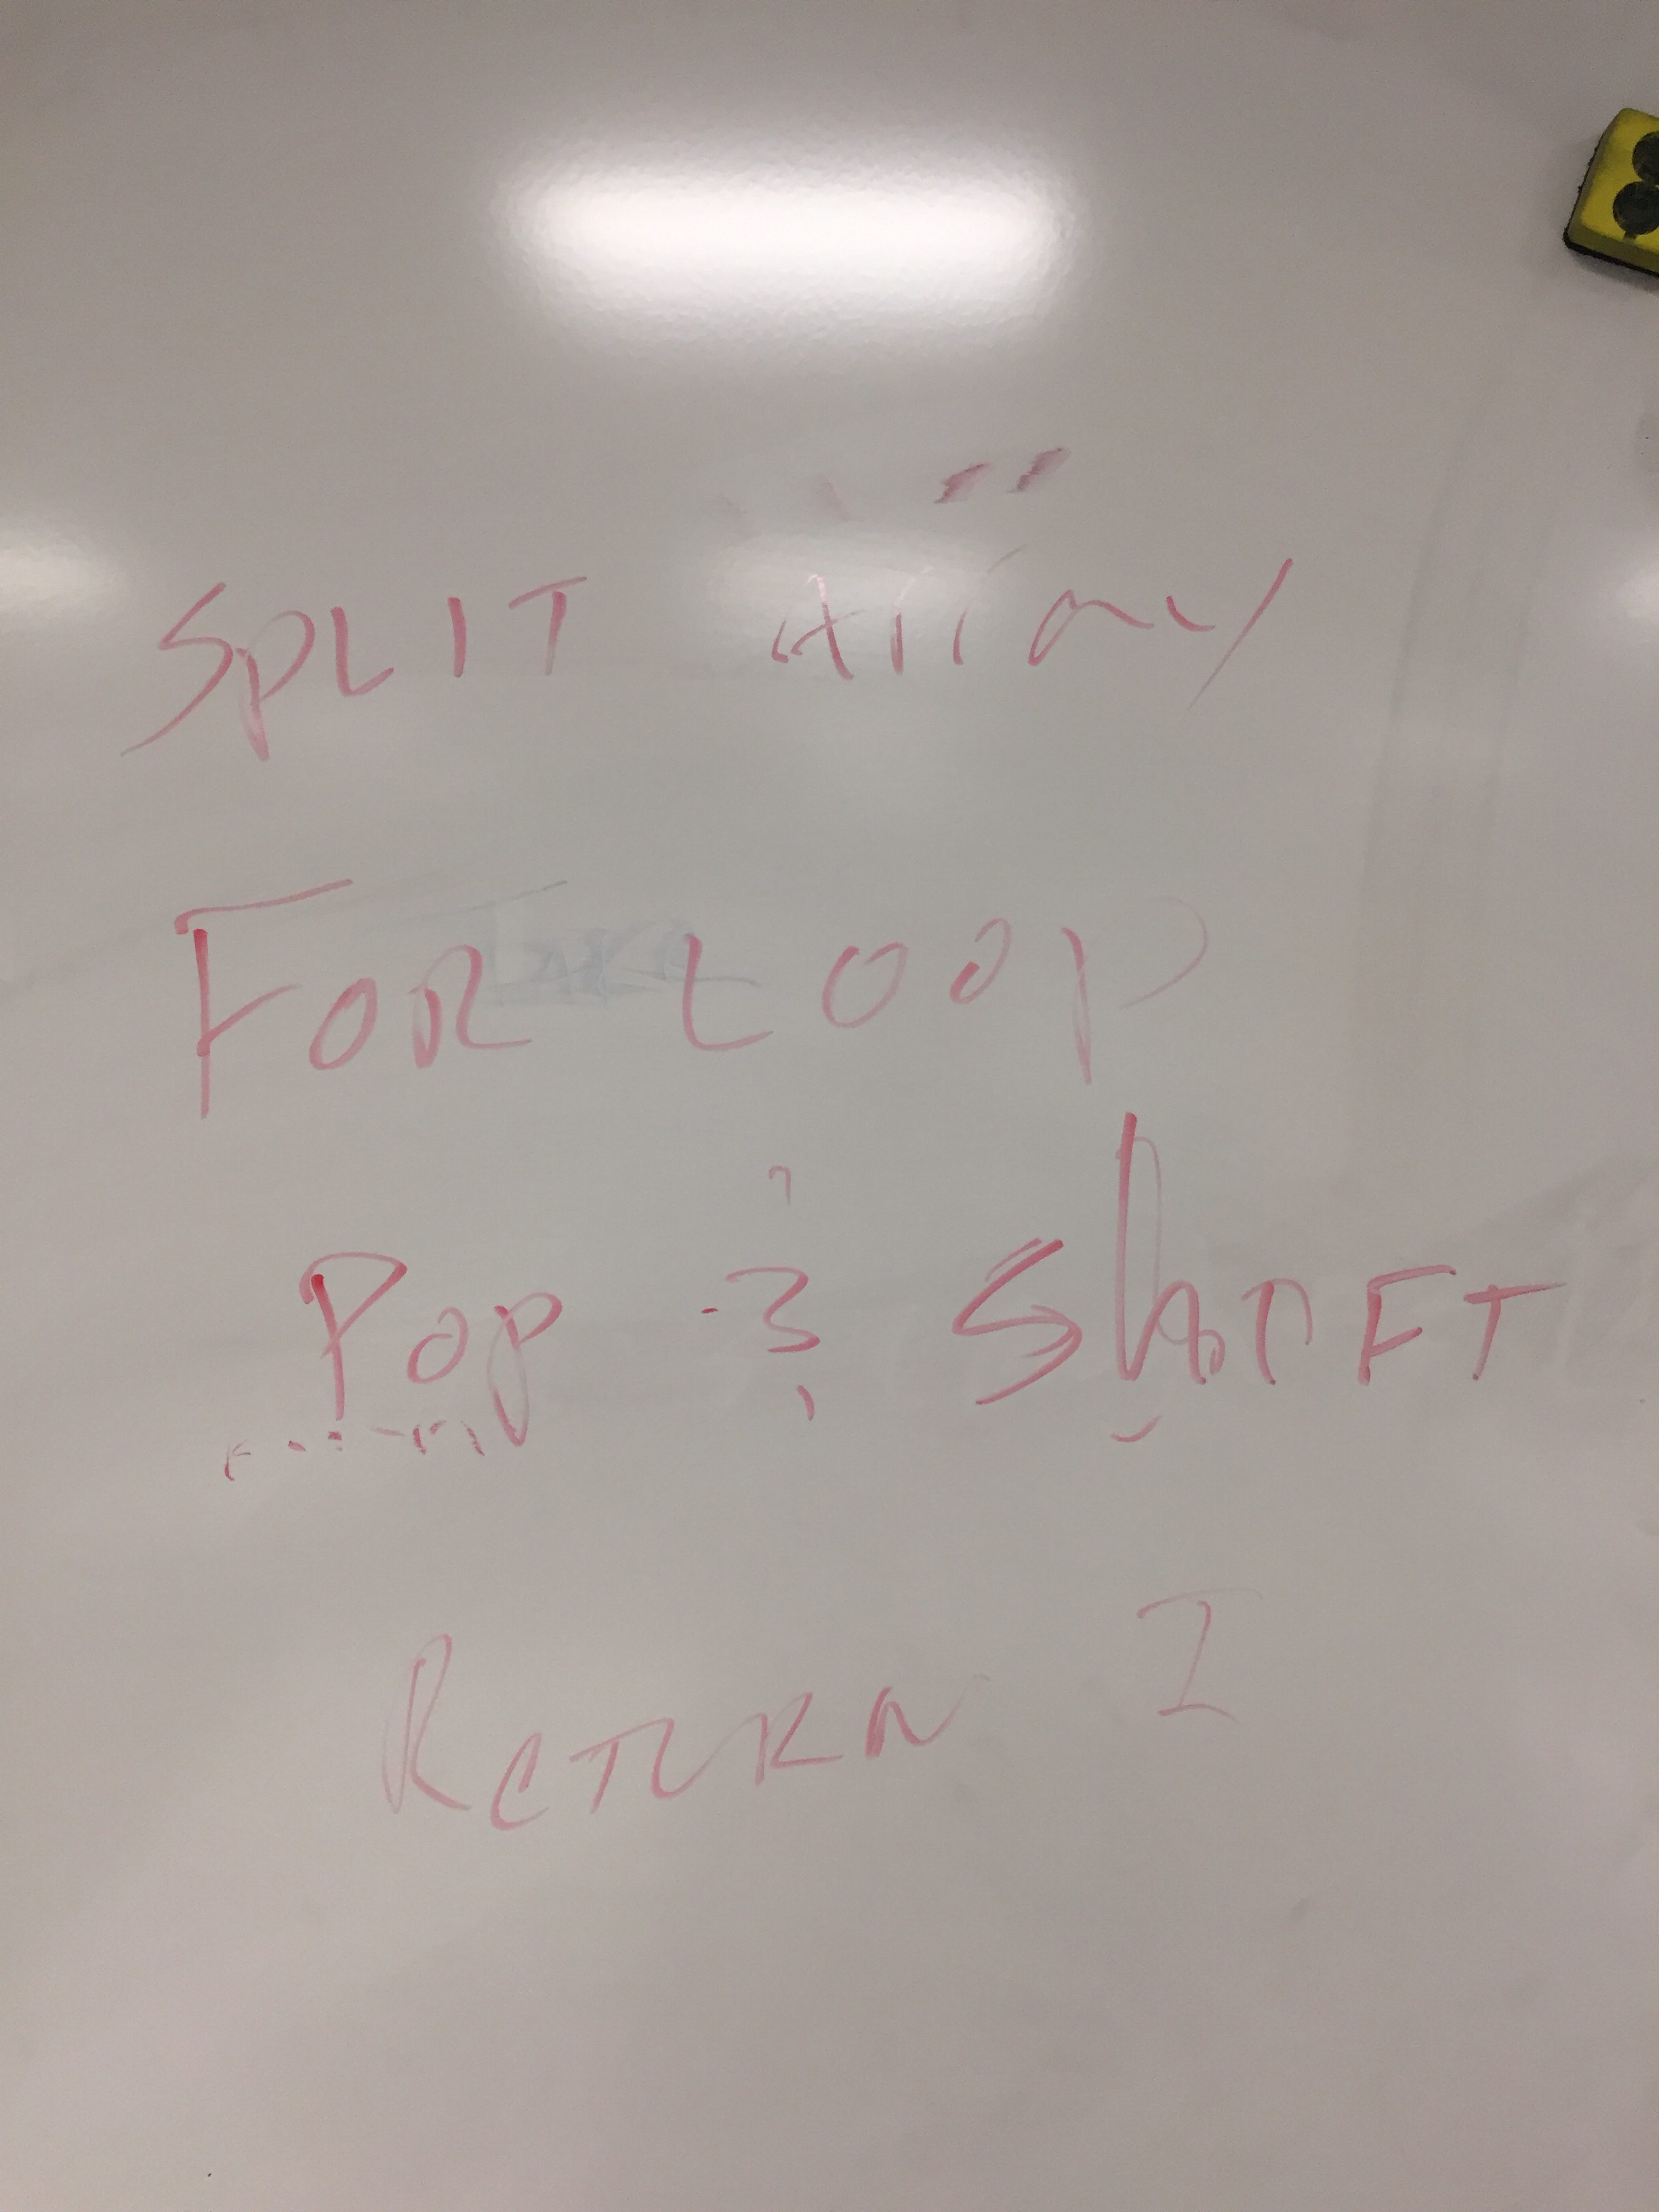 SPLIT Array
FOR LOOP
Pop & ShIFT
RETURN I